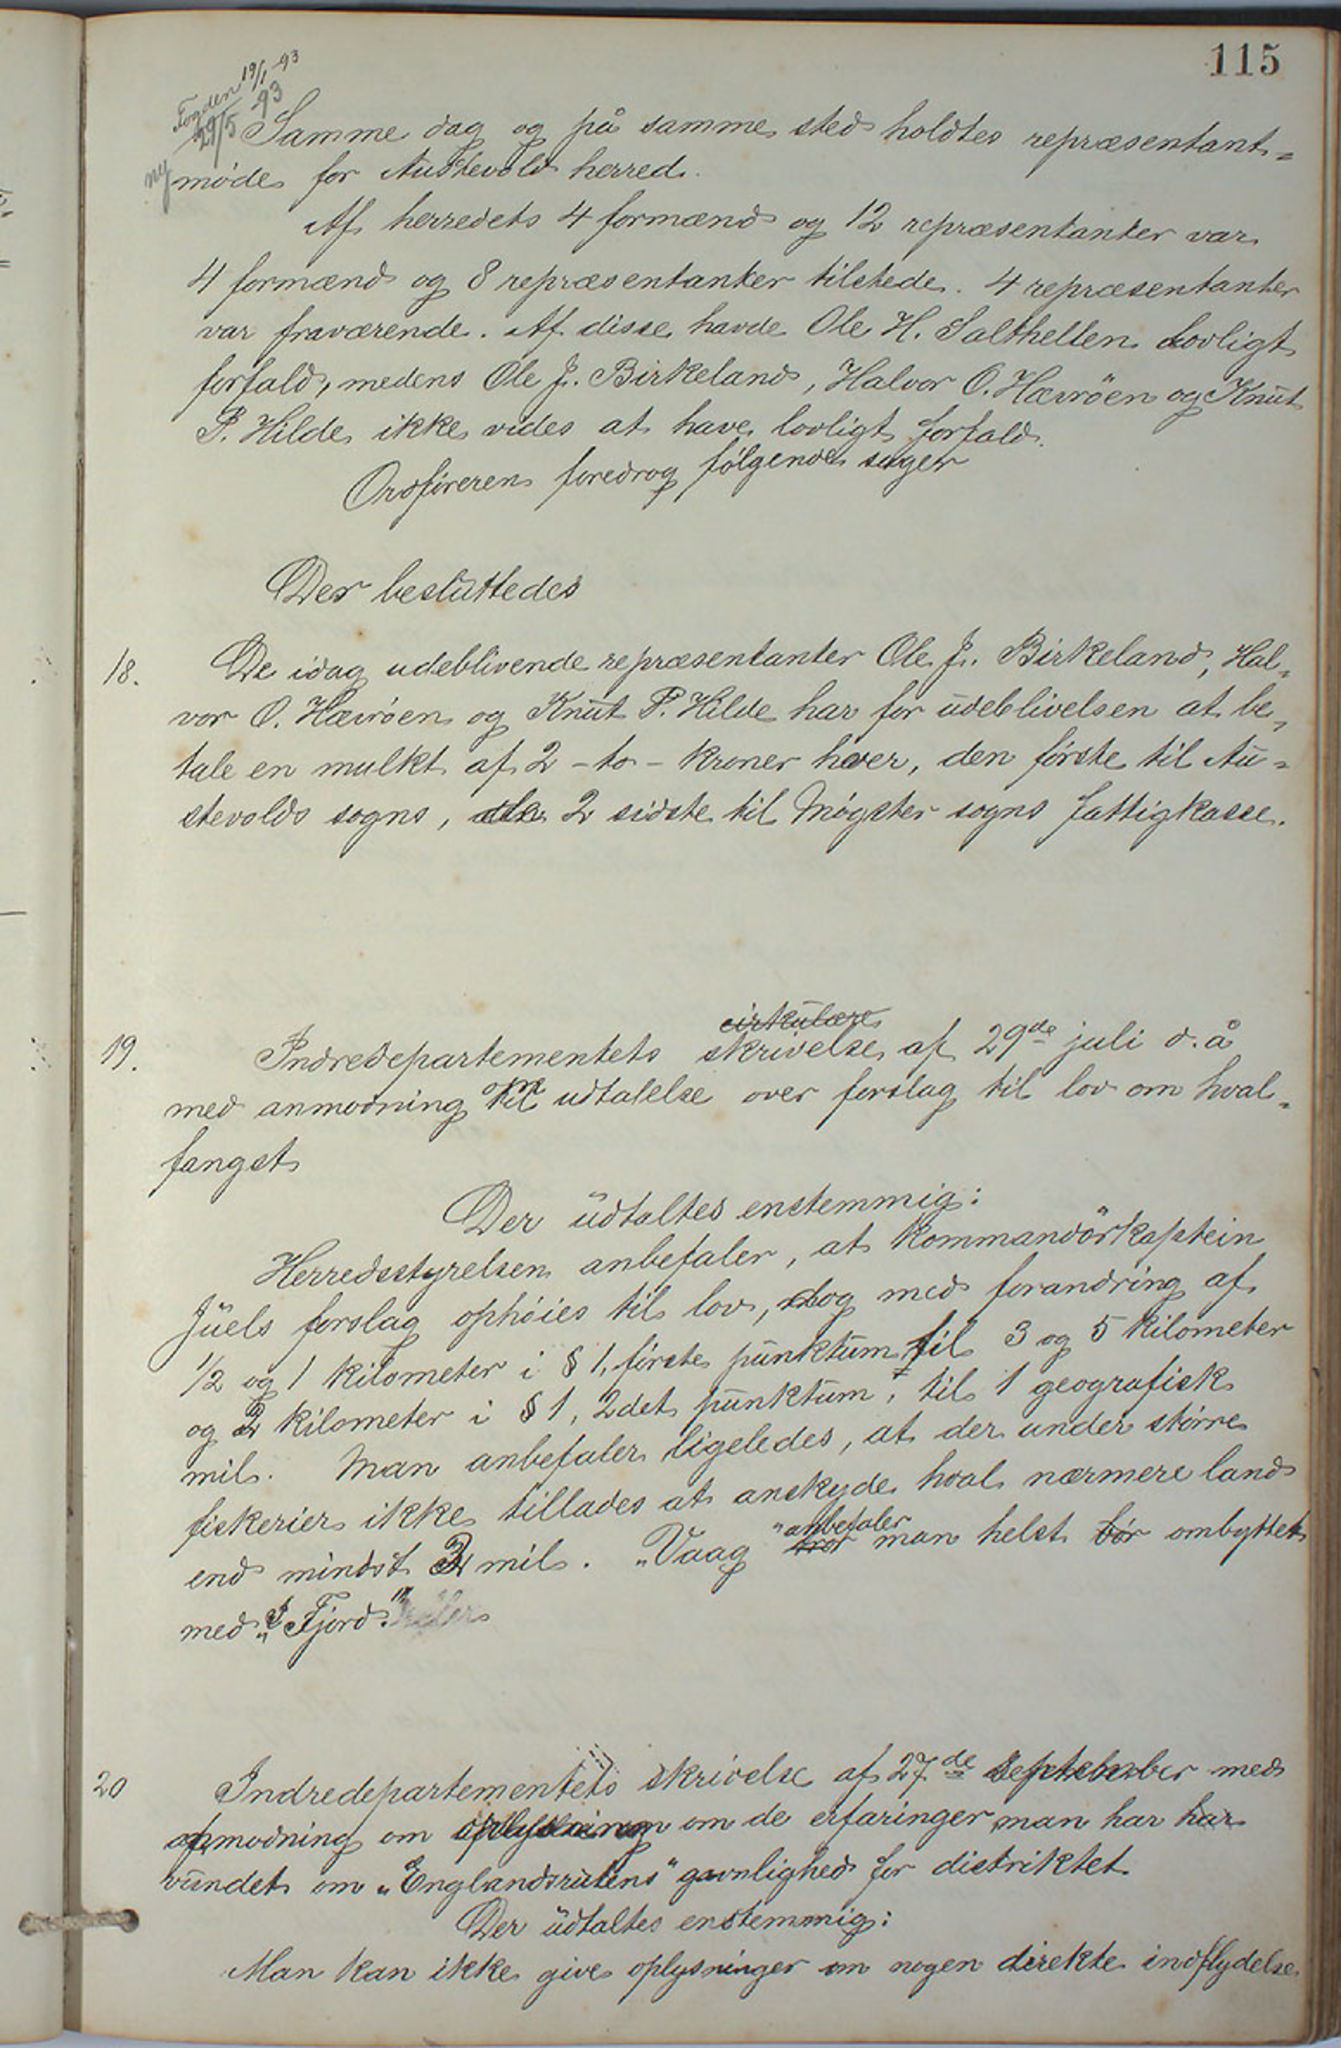 115
Fogden 19/1 93
29/5 93
ny
Samme dag og på samme sted holdtes repræsentant=
møde for Austevold herred.
Af herredets 4 formænd og 12 repræsentanter var
4 formænd og 8 repræsentanter tilstede. 4 repræsentanter
var fraværende. Af disse havde Ole H. Salthellen lovligt
forfald, medens Ole J. Birkeland, Halvor O. Hævröen og Knut
P. Hilde ikke vides at have lovligt forfald.
Ordføreren foredrog følgende sager
Der besluttedes
18. De idag udeblivende repræsentanter Ole J. Birkeland, Hal-
vor O. Hævröen og Knut P. Hilde har for udeblivelsen at be-
tale en mulkt af 2 - to - kroner hver, den første til Au=
stevolds sogns, de 2 sidste til Møgster sogns fattigkasse.
cirkulære
19. Indredepartementets skrivelse af 29de juli d. å
med anmodning om udtalelse over forslag til lov om hval=
fangst
Der udtaltes enstemmig:
Herredsstyrelsen anbefaler, at kommandörkaptein
Juels forslag ophøies til lov, dog med forandring af
1/2 og 1 kilometer i § 1, første punktum til 3 og 5 kilometer
og 2 kilometer i § 1, 2det punktum, til 1 geografisk
mil. Man anbefaler ligeledes, at der under større
fiskerier ikke tillades at anskyde hval nærmere land
anbefaler
end mindst 2 mil. "Vaag" tror man helst bør ombyttet
med "Fjord".
20 Indredepartementets skrivelse af 27de September med
anmodning om oplysning om de erfaringer man har har
vundet om "Englandsrutens" gavnlighed for distriktet
Der udtaltes enstemmig:
Man kan ikke give oplysninger om nogen direkte indflydelse